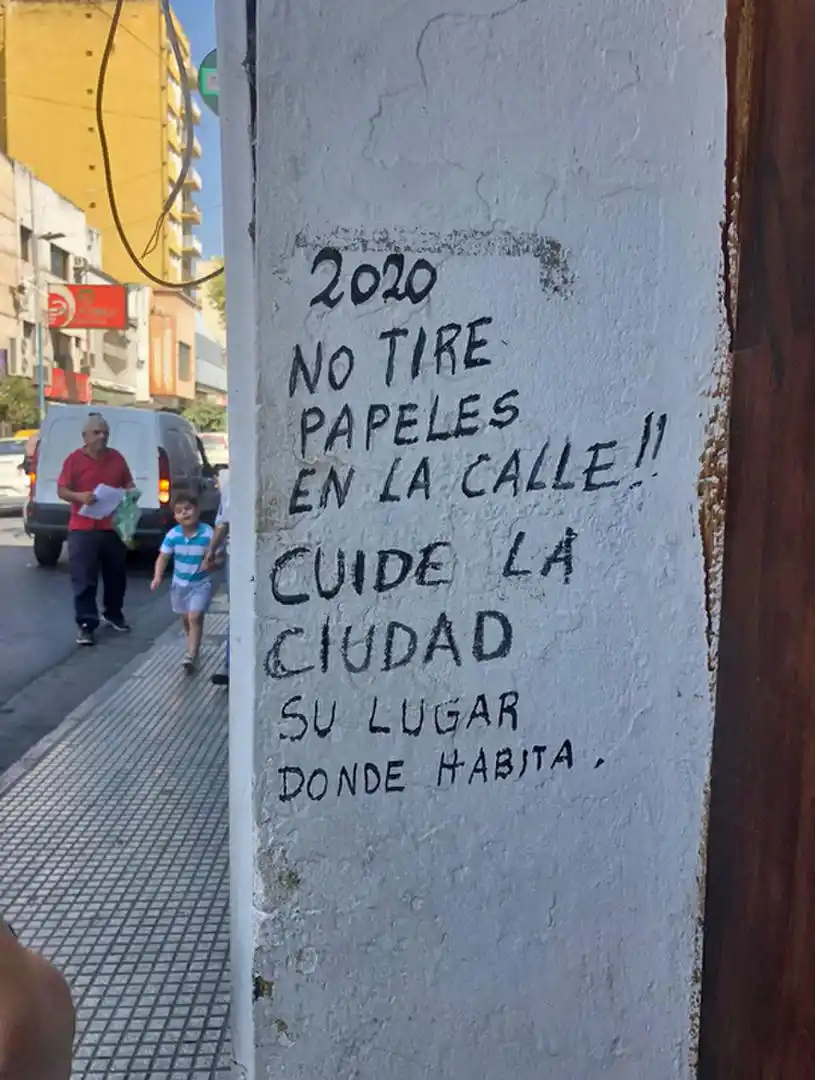 2020
NO TIRE
PAPELES
EN LA CALLE!!
CUIDE LA
CIUDAD
SU LUGAR
DONDE HABITA.